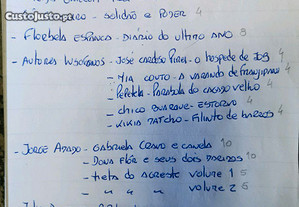 CustoJusto.pt
- Solidão e Poder 4
- Florbela Espanca - Diário do último ano 8
- Autores Lusófonos - José Cardoso Pires - O hospede de Job 4
- Mia Couto - A varanda do frangipani
- Pepetela - Parabola do cagado velho 4
- Chico Buarque - Estorvo 4
- - Filinto de Barros 4
- Jorge Amado - Gabriela Cravo e canela 10
- Dona Flor e seus dois maridos 10
- Tieta do Agreste volume 1 5
- " " " volume 2 5